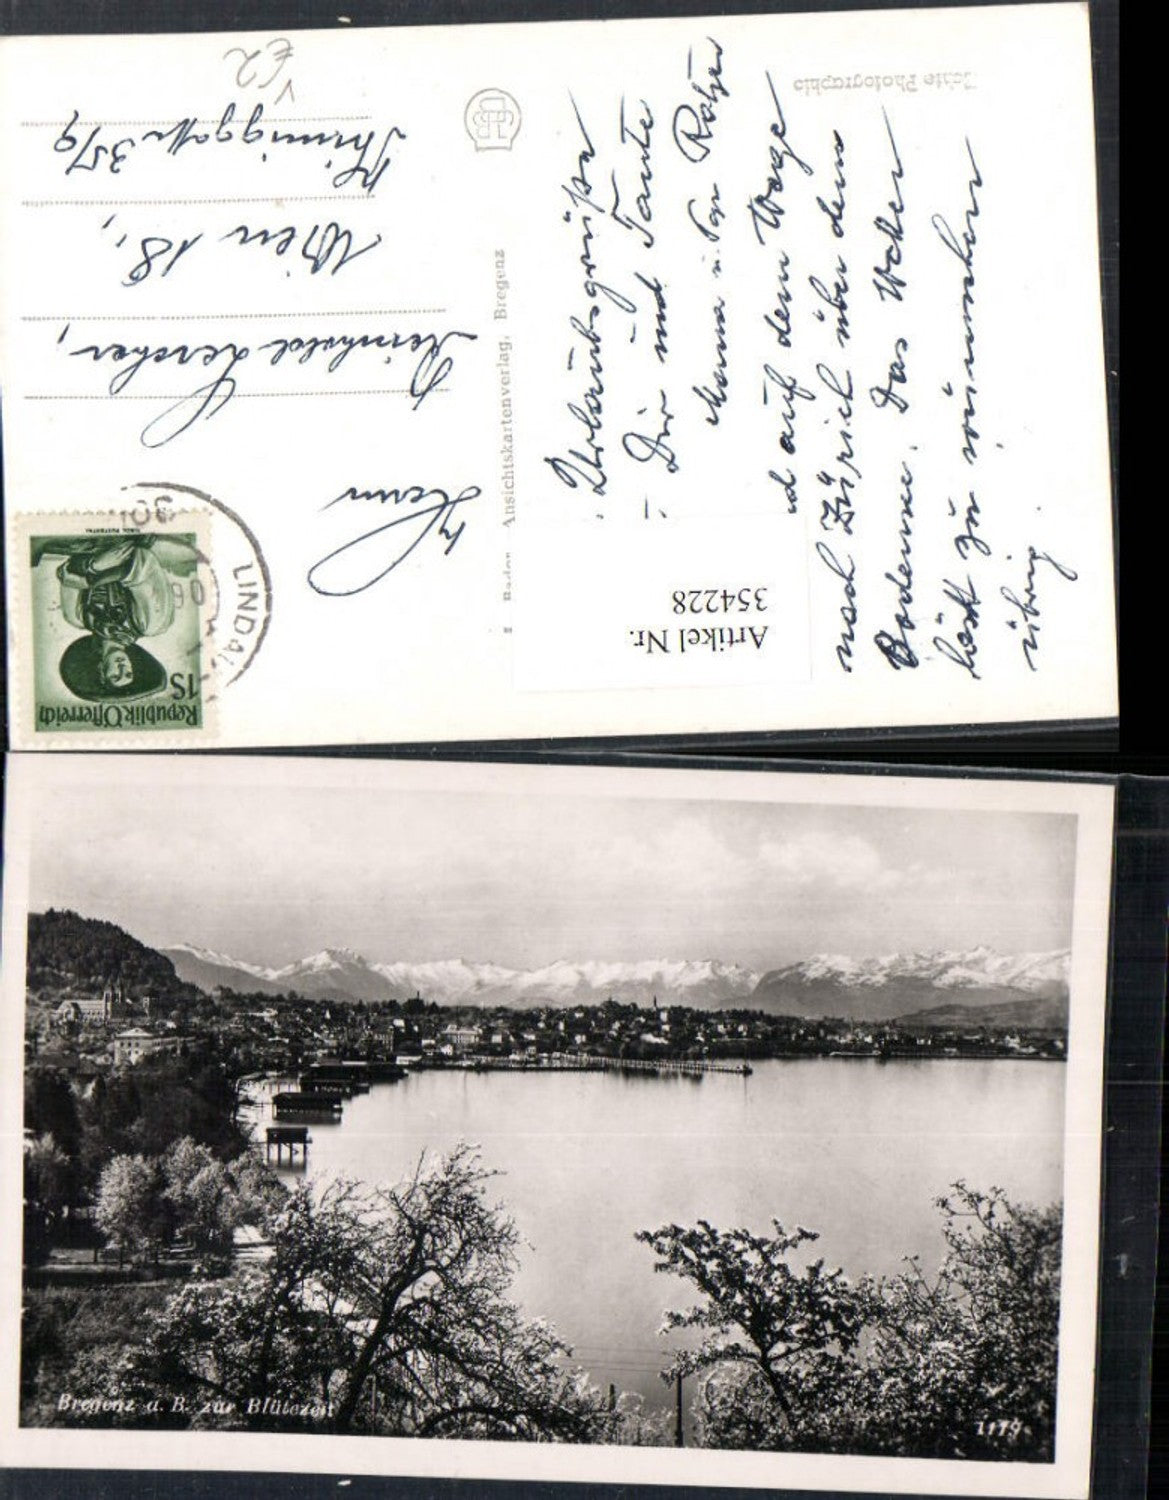 Echte Photographie
Urlaubsgrüße
Dir und Tante
Mama u.
auf dem Wege
nach Zürich über den
Bodensee. Das Wetter
läßt zu wünschen
übrig.
Ansichtskartenverlag, Bregenz
Herrn
Reinhold Lercher,
Wien 18.,
35/9
€2
V
LINDAU
Republik Österreich
1S
Artikel Nr.
354228
Bregenz a. B. zur Blütezeit
1179